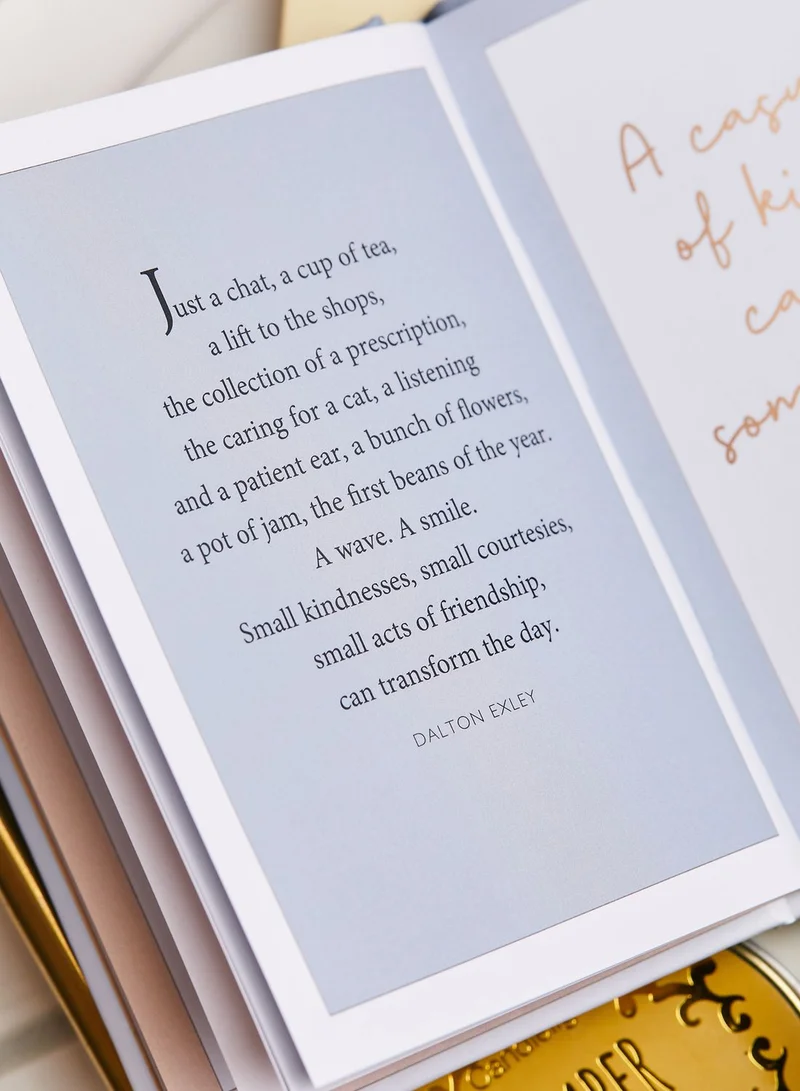 Just a chat, a cup of tea,
a lift to the shops,
the collection of a prescription,
the caring for a cat, a listening
and a patient ear, a bunch of flowers,
a pot of jam, the first beans of the year.
A wave. A smile.
Small kindnesses, small courtesies,
small acts of friendship,
can transform the day.
DALTON EXLEY
A
of